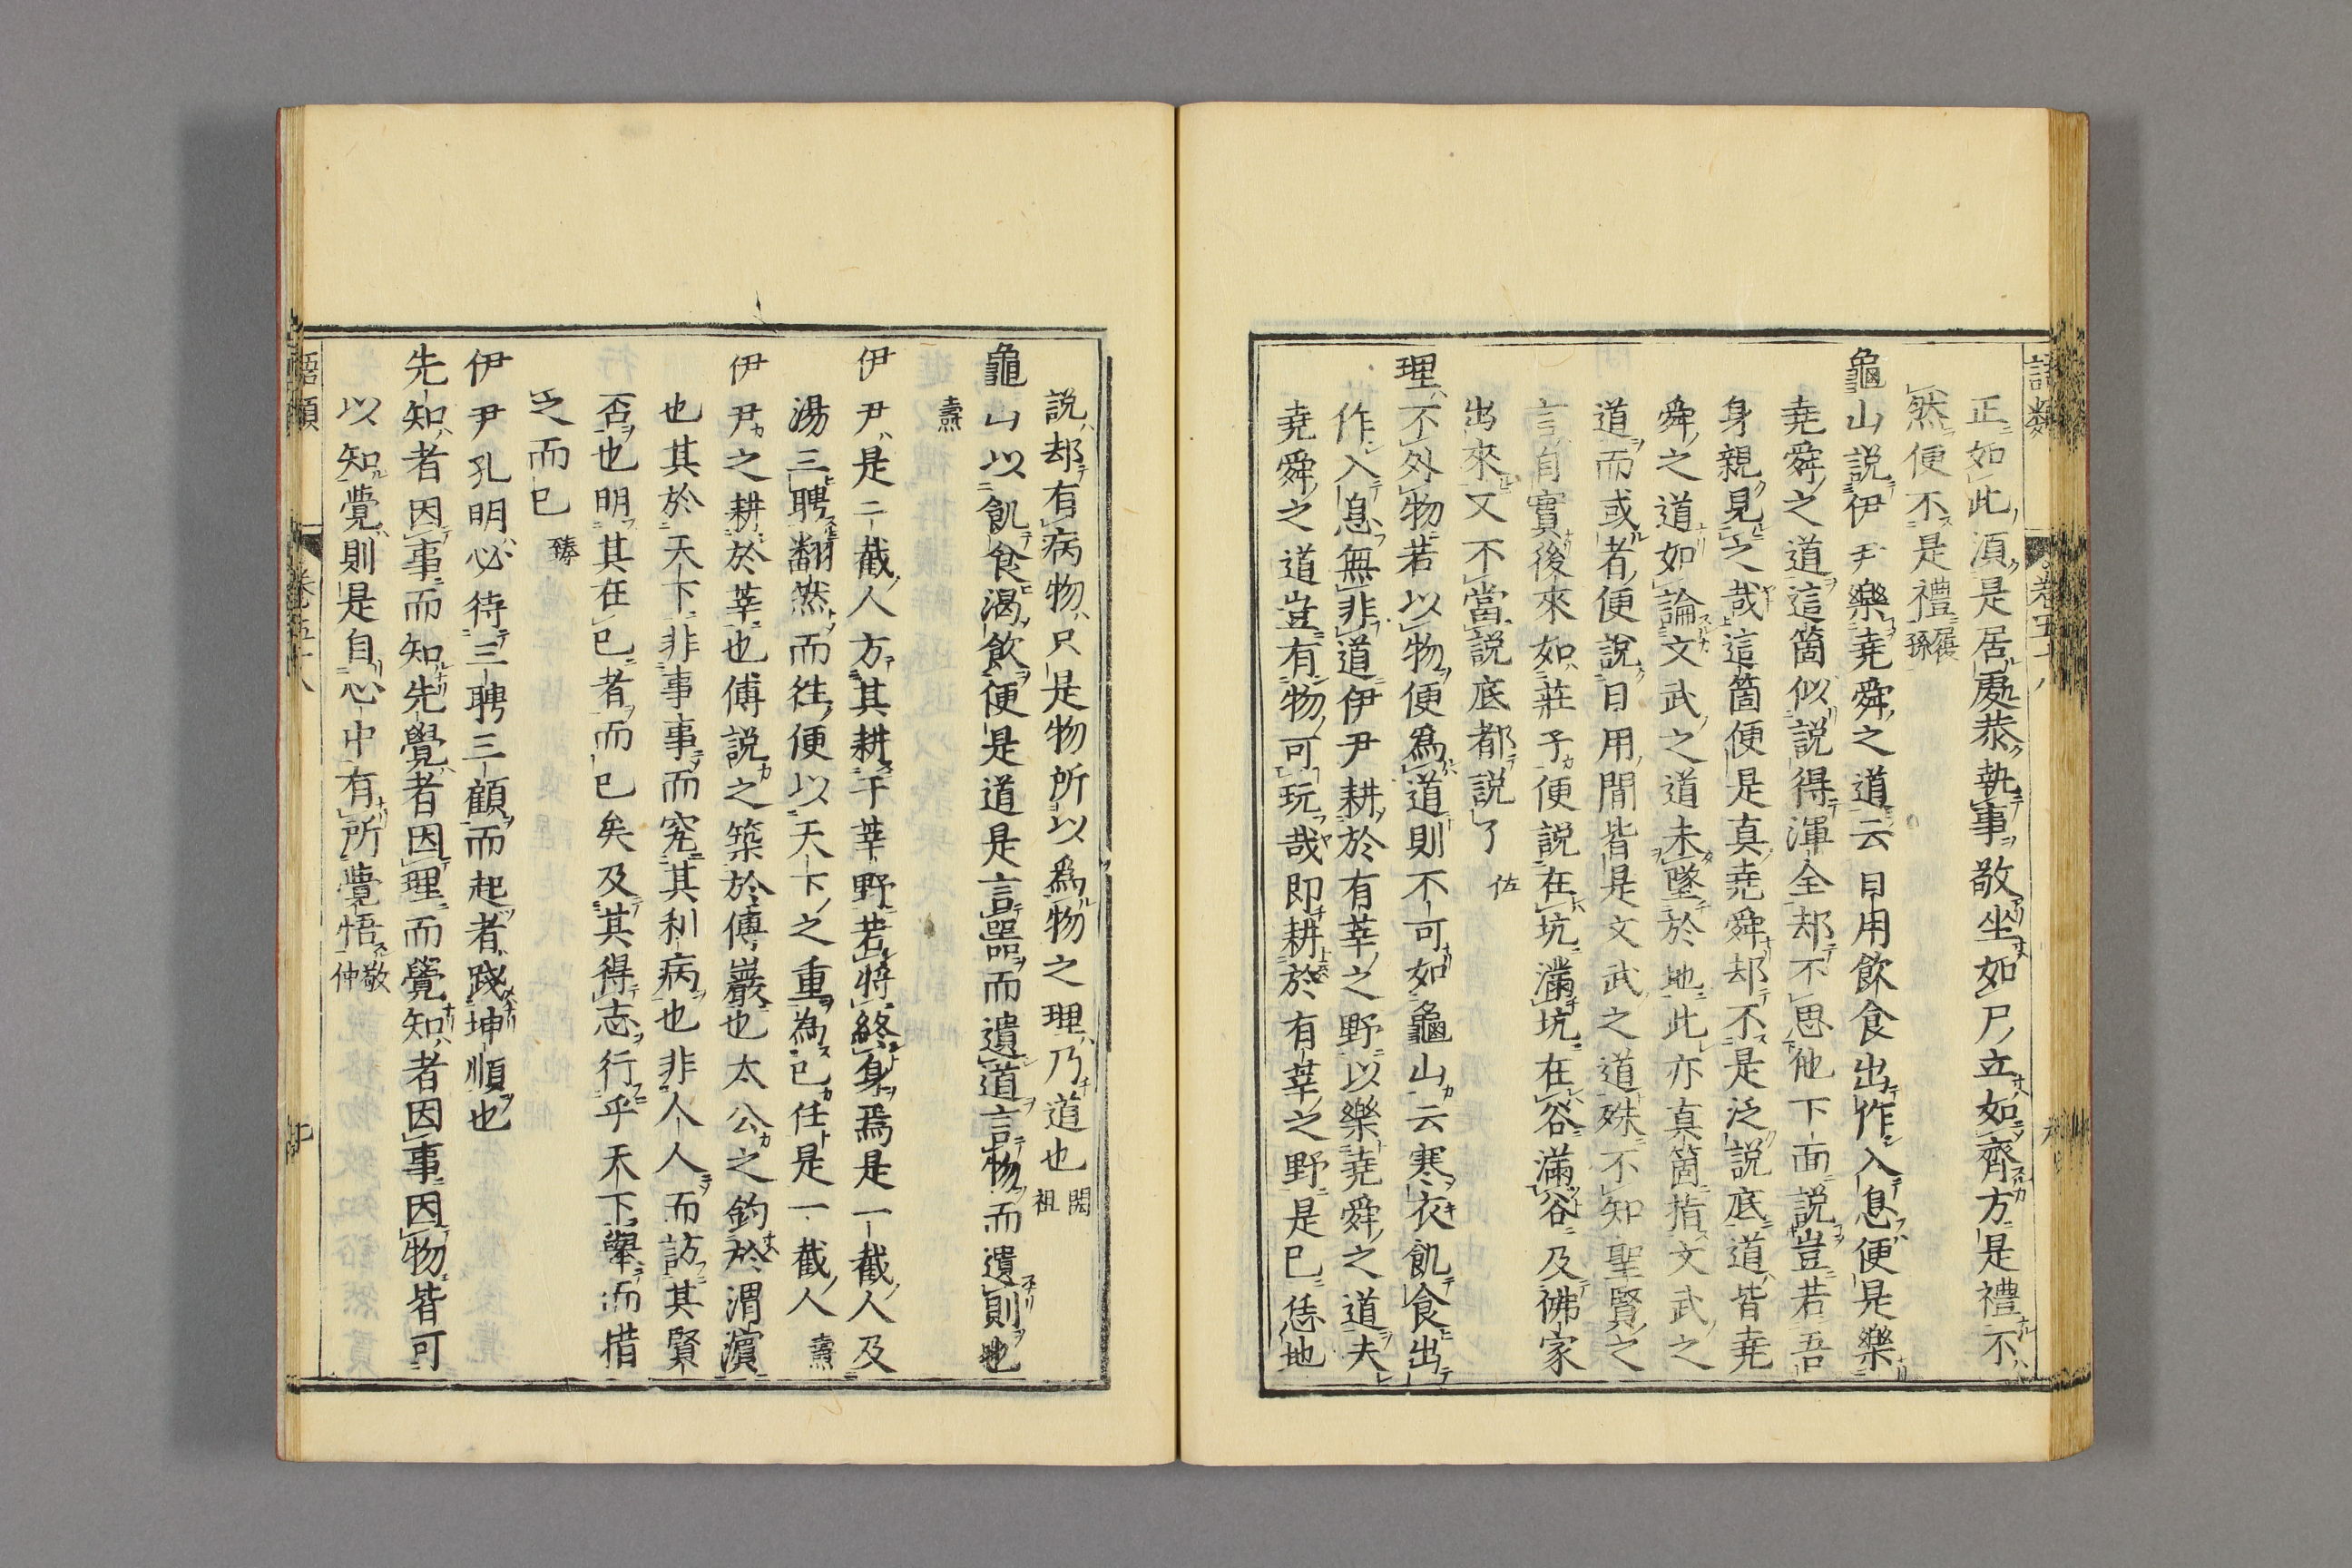 語類
卷五十八
正如此須是居處恭執事敬坐如尸立如齊方是禮不
然便不是禮 履孫
龜山說伊尹樂堯舜之道云日用飲食出作入息便是樂
堯舜之道這箇似說得渾全却不思他下面說豈若吾
身親見之哉這箇便是真堯舜却不是泛說底道皆堯
舜之道如論文武之道未墜於地此亦真箇指文武之
道而或者便說日用間皆是文武之道殊不知聖賢之
言自實後來如莊子便說在坑滿坑在谷滿谷及佛家
出來又不當說底都說了 佐
理不外物若以物便爲道則不可如龜山云寒衣飢食出
作入息無非道伊尹耕於有莘之野以樂堯舜之道夫
堯舜之道豈有物可玩哉即耕於有莘之野是已恁地
說却有病物只是物所以爲物之理乃道也 閎祖
龜山以飢食渴飲便是道是言器而遺道言物而遺則也
燾
伊尹是二截人方其耕于莘野若將終身焉是一截人及
湯三聘翻然而往便以天下之重為己任是一截人 燾
伊尹之耕於莘也傅說之築於傅巖也太公之釣於渭濱
也其於天下非事事而究其利病也非人人而訪其賢
否也明其在己者而已矣及其得志行乎天下舉而措
之而已 臻
伊尹孔明必待三聘三顧而起者踐坤順也
先知者因事而知先覺者因理而覺知者因事因物皆可
以知覺則是自心中有所覺悟 敬仲
語類
卷五十八